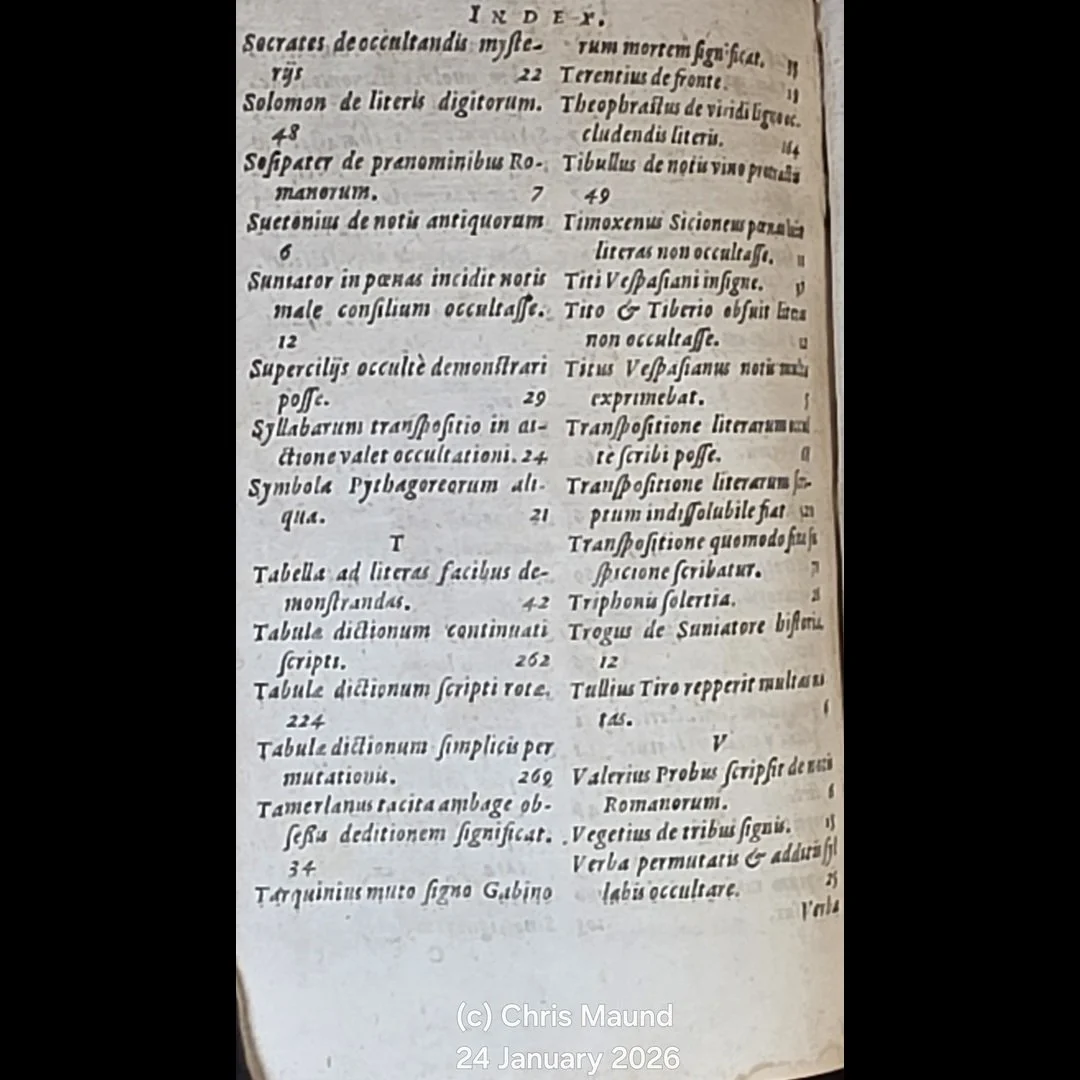 INDEX.
Socrates de occultandis myste-
rijs 22
Solomon de literis digitorum.
48
Sosipater de prænominibus Ro-
manorum. 7
Suetonius de notis antiquorum
6
Suniator in pœnas incidit notis
male consilium occultasse.
12
Supercilijs occultè demonstrari
posse. 29
Syllabarum transpositio in di-
ctione valet occultationi. 24
Symbola Pythagoreorum ali-
qua. 21
T
Tabella ad literas facibus de-
monstrandas. 42
Tabulæ dictionum continuati
scripti. 262
Tabulæ dictionum scripti rotæ.
224
Tabulæ dictionum simplicis per
mutationis. 269
Tamerlanus tacita ambage ob-
sessis deditionem significat.
34
Tarquinius muto signo Gabino
rum mortem significat.
Terentius de fronte.
Theophrastus de viridi ligno oc.
cludendis literis. 164
Tibullus de notis vino
49
Timoxenus Sicioneus
literas non occultasse. 11
Titi Vespasiani insigne.
Tito & Tiberio obfuit
non occultasse. 12
Titus Vespasianus notis
exprimebat. 5
Transpositione literarum
tè scribi posse.
Transpositione literarum
ptum indissolubile fiat
Transpositione quomodo
spicione scribatur.
Triphonis solertia.
Trogus de Suniatore historia.
12
Tullius Tiro repperit multas
tas. 6
V
Valerius Probus scripsit de
Romanorum. 6
Vegetius de tribus signis. 15
Verba permutatis & additis syl
labis occultare. 25
Verba
(c) Chris Maund
24 January 2026